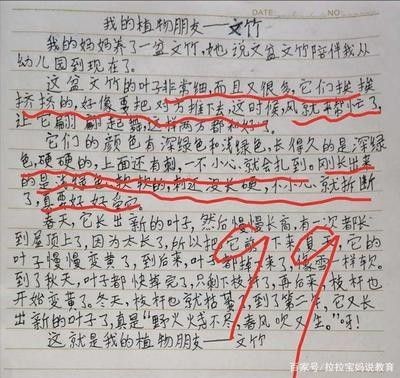 我的植物朋友——文竹
我的妈妈养了一盆文竹,她说文盆文竹陪伴我从
幼儿园到现在了。
这盆文竹的叶子非常细,而且又很多,它们挨挨
挤挤的,好像要把对方推下去,这时候,风就来帮忙了,
让它翩翩起舞,这样两方都和好了。
它们的颜色有深绿色和浅绿色,长得久的是深绿
色,硬硬的,上面还有刺,一不小心,就会扎到。刚长出来
的是浅绿色,软软的,刺还没长硬,不小心就折断
了,真要好好
春天,它长出新的叶子,然后慢慢长高,有一次都长
到屋顶上了,因为太长了,所以把它 下来 夏天,它的
叶子慢慢变黄了,到后来,叶子都掉下来了,像雪一样软。
到了秋天,叶子都快掉完了,只剩下枝杆了,再后来,枝杆也
开始变黄了。冬天,枝杆也就枯萎 到了第二年,它又长
出新的叶子了,真是“野火烧不尽,春风吹又生。”呀!
这就是我的植物朋友——文竹
99
百家号/拉拉宝妈说教育